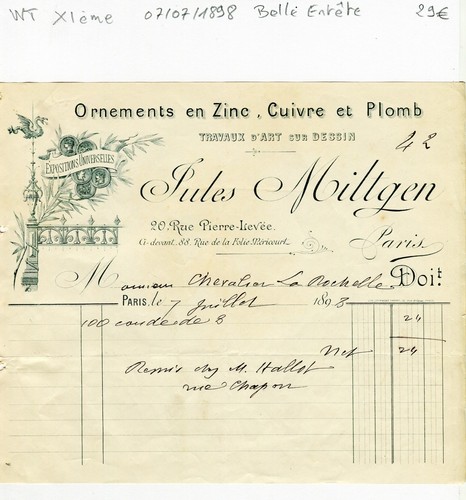 WT XIème 07/07/1898 Belle Entête 29€
Ornements en Zinc, Cuivre et Plomb
TRAVAUX D'ART SUR DESSIN
42
EXPOSITIONS UNIVERSELLES
Jules Miltgen
20. Rue Pierre-Levée.
Ci-devant, 88, Rue de la Folie Méricourt.
Paris
Monsieur Chevalier La Rochelle Doit
PARIS, le 7 Juillet 1898
100 coudes de 8 24
Net 24
Remis chez M. Hallot
rue Chapon